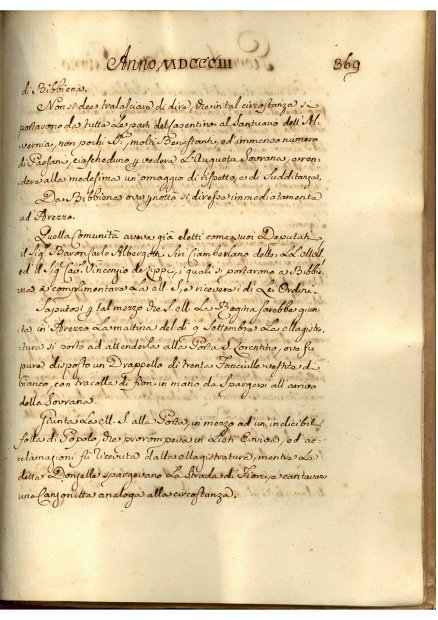 Anno MDCCCIII 369
di Bibbiena.
Non si dee tralasciare di dire, che in tal circostanza si
portarono da tutta la parte del Casentino al Santuario dell'Al,
vernia, non pochi molti Benestanti, ed immenso numero
di Paesani, ciascheduno p vedere l'Augusta Sovrana, e ren,
dere alla medesima un omaggio di rispetto, e di Sudditanza.
Da Bibbiena ove pnottò si diresse immediatamente
ad Arezzo.
Quella Comunità aveva già eletti come suoi Deputati
il Sig. Baron Carlo Albergotti Ciamberlano delle LL. MM.
ed il Sig. Cav. Vincenzio i quali si portarono a Bibbie,
na a complimentare La M. S. e ricevere i di Lei Ordini.
Saputosi p tal mezzo che S. M. La Regina sarebbe giun,
ta in Arezzo La mattina del dì 9 Settembre La Magistra,
tura si portò ad attenderla alla Porta S. Lorentino, ove fu
pure disposto un Drappello di trenta Fanciulle vestite di
bianco, con tracolla di fiori in mano da spargersi all'arrivo
della Sovrana.
Giunta La M. S. alla Porta, in mezzo ad un'indicibil
folla di Popolo, che prorompeva in Lieti Evviva, ed ac,
clamazioni fu ricevuta dalla Magistratura, mentre Le
dette Donzelle spargevano La Strada di Fiori, e cantavano
una Canzonetta analoga alla circostanza.